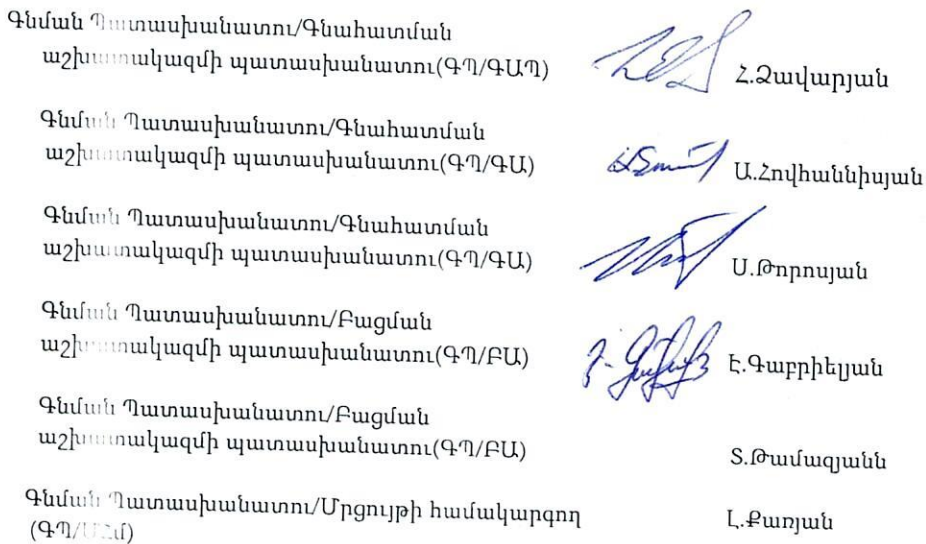 Գնման Պատասխանատու/Գնահատման
աշխատակազմի պատասխանատու(ԳՊ/ԳԱՊ)
Հ.Զավարյան
Գնման Պատասխանատու/Գնահատման
աշխատակազմի պատասխանատու(ԳՊ/ԳԱ)
Ա.Հովհաննիսյան
Գնման Պատասխանատու/Գնահատման
աշխատակազմի պատասխանատու(ԳՊ/ԳԱ)
Ս.Թորոսյան
Գնման Պատասխանատու/Բացման
աշխատակազմի պատասխանատու(ԳՊ/ԲԱ)
Է.Գաբրիելյան
Գնման Պատասխանատու/Բացման
աշխատակազմի պատասխանատու(ԳՊ/ԲԱ)
Տ.Թամազյանն
Գնման Պատասխանատու/Մրցույթի համակարգող
Լ.Քառյան
(ԳՊ/ՄՀմ)